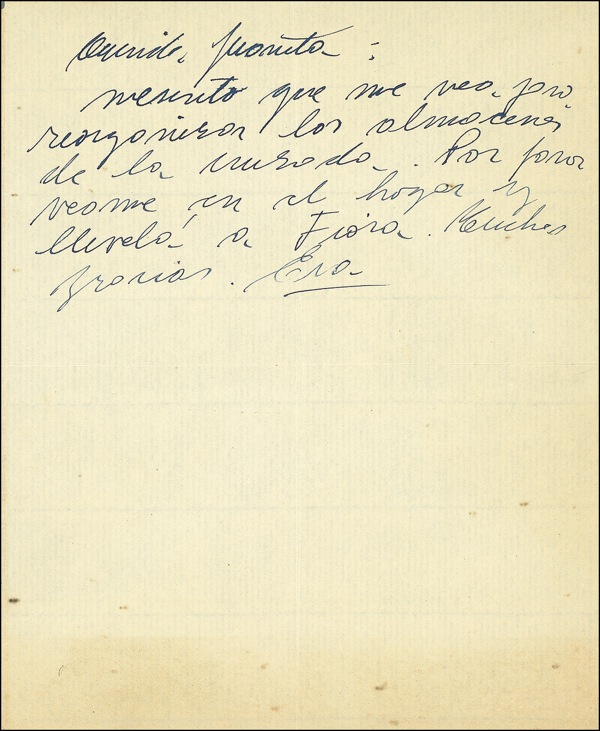 Querida Juanita:
necesito que me vea para
reorganizar los almacenes
de la cruzada. Por favor
veame en el hogar y
llevela a Fiora. Muchas
gracias. Eva